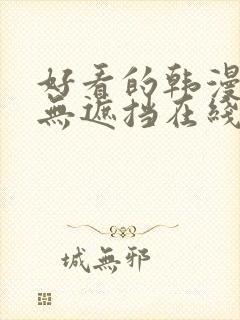 好看的韩漫
無遮挡在线
城無邪